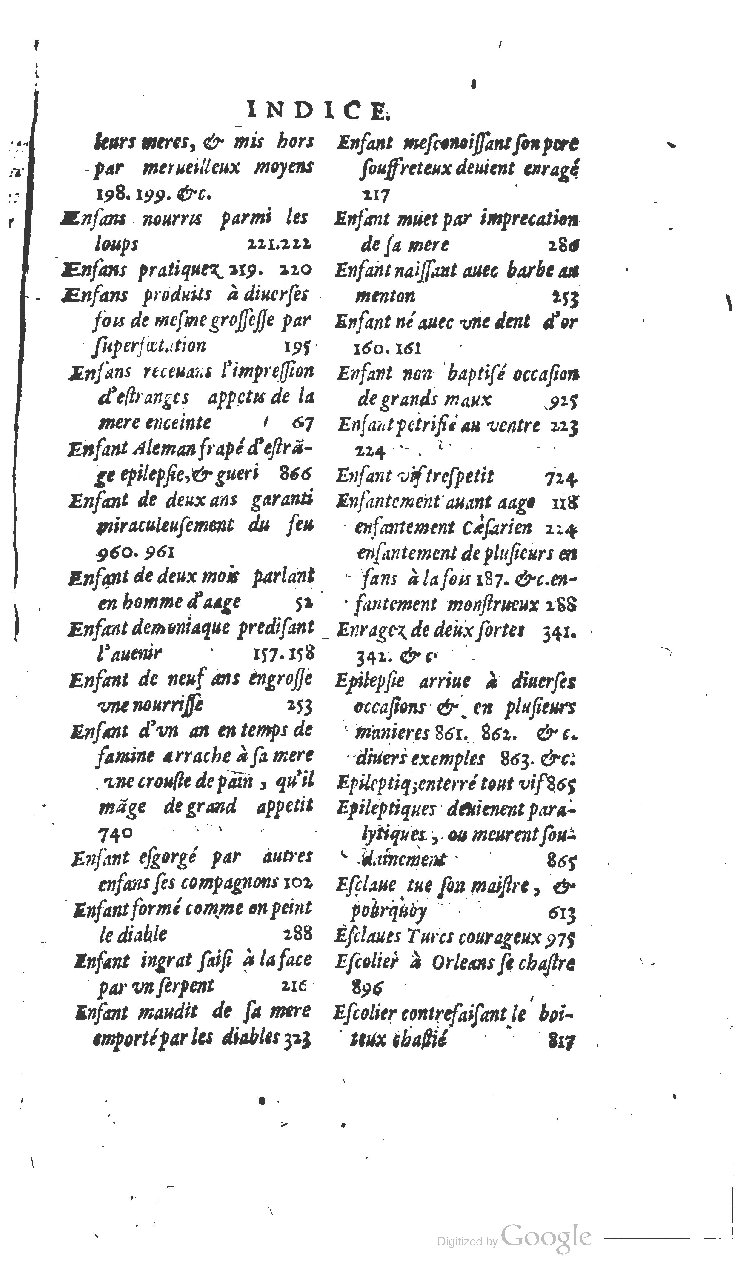 INDICE.
leurs meres, & mis hors
par merueilleux moyens
198. 199. &c.
Enfans nourris parmi les
loups 221.222
Enfans pratiquez 219. 220
Enfans produits à diuerses
fois de mesme grossesse par
superfœtation 195
Enfans receuans l'impression
d'estranges appetis de la
mere enceinte 67
Enfant Aleman frapé d'estrã-
ge epilepsie, & gueri 866
Enfant de deux ans garanti
miraculeusement du feu
960. 961
Enfant de deux mois parlant
en homme d'aage 52
Enfant demoniaque predisant
l'auenir 157.158
Enfant de neuf ans engrosse
vne nourrisse 253
Enfant d'vn an en temps de
famine arrache à sa mere
vne crouste de pain, qu'il
mãge de grand appetit
740
Enfant esgorgé par autres
enfans ses compagnons 102
Enfant formé comme on peint
le diable 288
Enfant ingrat saisi à la face
par vn serpent 216
Enfant maudit de sa mere
emporté par les diables 323
Enfant mesconoissant son pere
souffreteux deuient enragé
217
Enfant muet par imprecation
de sa mere 286
Enfant naissant auec barbe au
menton 253
Enfant né auec vne dent d'or
160. 161
Enfant non baptisé occasion
de grands maux 925
Enfant petrifié au ventre 223
224
Enfant vif trespetit 724
Enfantement auant aage 118
enfantement Cæsarien 224
enfantement de plusieurs en
fans à la fois 187. &c. en-
fantement monstrueux 288
Enragez de deux sortes 341.
342. & c
Epilepsie arriue à diuerses
occasions & en plusieurs
manieres 861. 862. & c.
diuers exemples 863. &c.
Epileptiq; enterré tout vif 865
Epileptiques deuienent para-
lytiques, ou meurent sou-
dainement 865
Esclaue tue son maistre, &
pourquoy 613
Esclaues Turcs courageux 975
Escolier à Orleans se chastre
896
Escolier contrefaisant le boi-
teux chastié 817
Digitized by Google